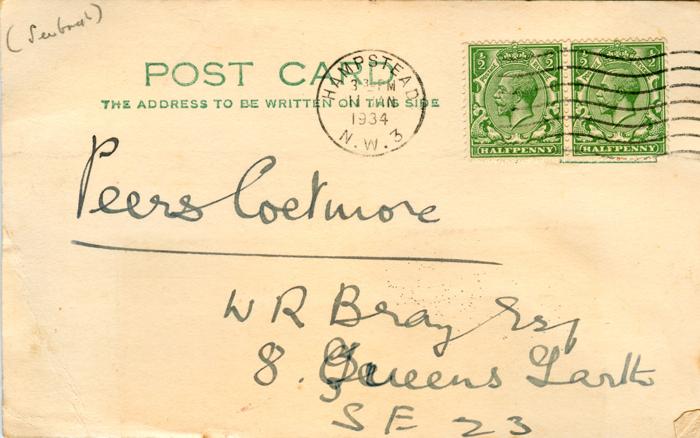 POST CARD
THE ADDRESS TO BE WRITTEN ON THIS SIDE
HAMPSTEAD
3 PM
11 JAN
1934
N.W.3
HALFPENNY
HALFPENNY
Peers Coetmore
W R Bray Esq
8. Queens Garth
S E 23